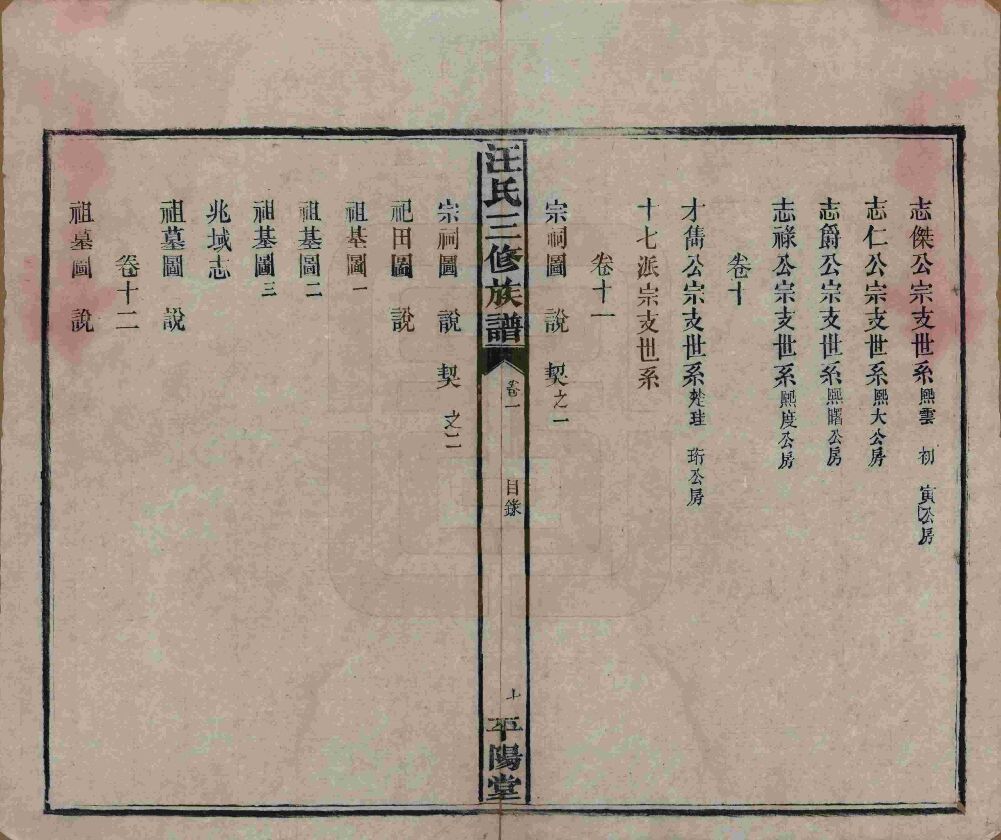 志傑公宗支世系熙雲 初 寅公房
志仁公宗支世系熙大公房
志爵公宗支世系熙曙公房
志祿公宗支世系熙度公房
卷十
才儁公宗支世系楚珪 珩公房
十七派宗支世系
卷十一
宗祠圖 說 契之一
汪氏三修族譜 卷一 目錄 上 平陽堂
宗祠圖 說 契之二
祀田圖 說
祖基圖一
祖基圖二
祖基圖三
兆域志
祖墓圖 說
卷十二
祖墓圖 說